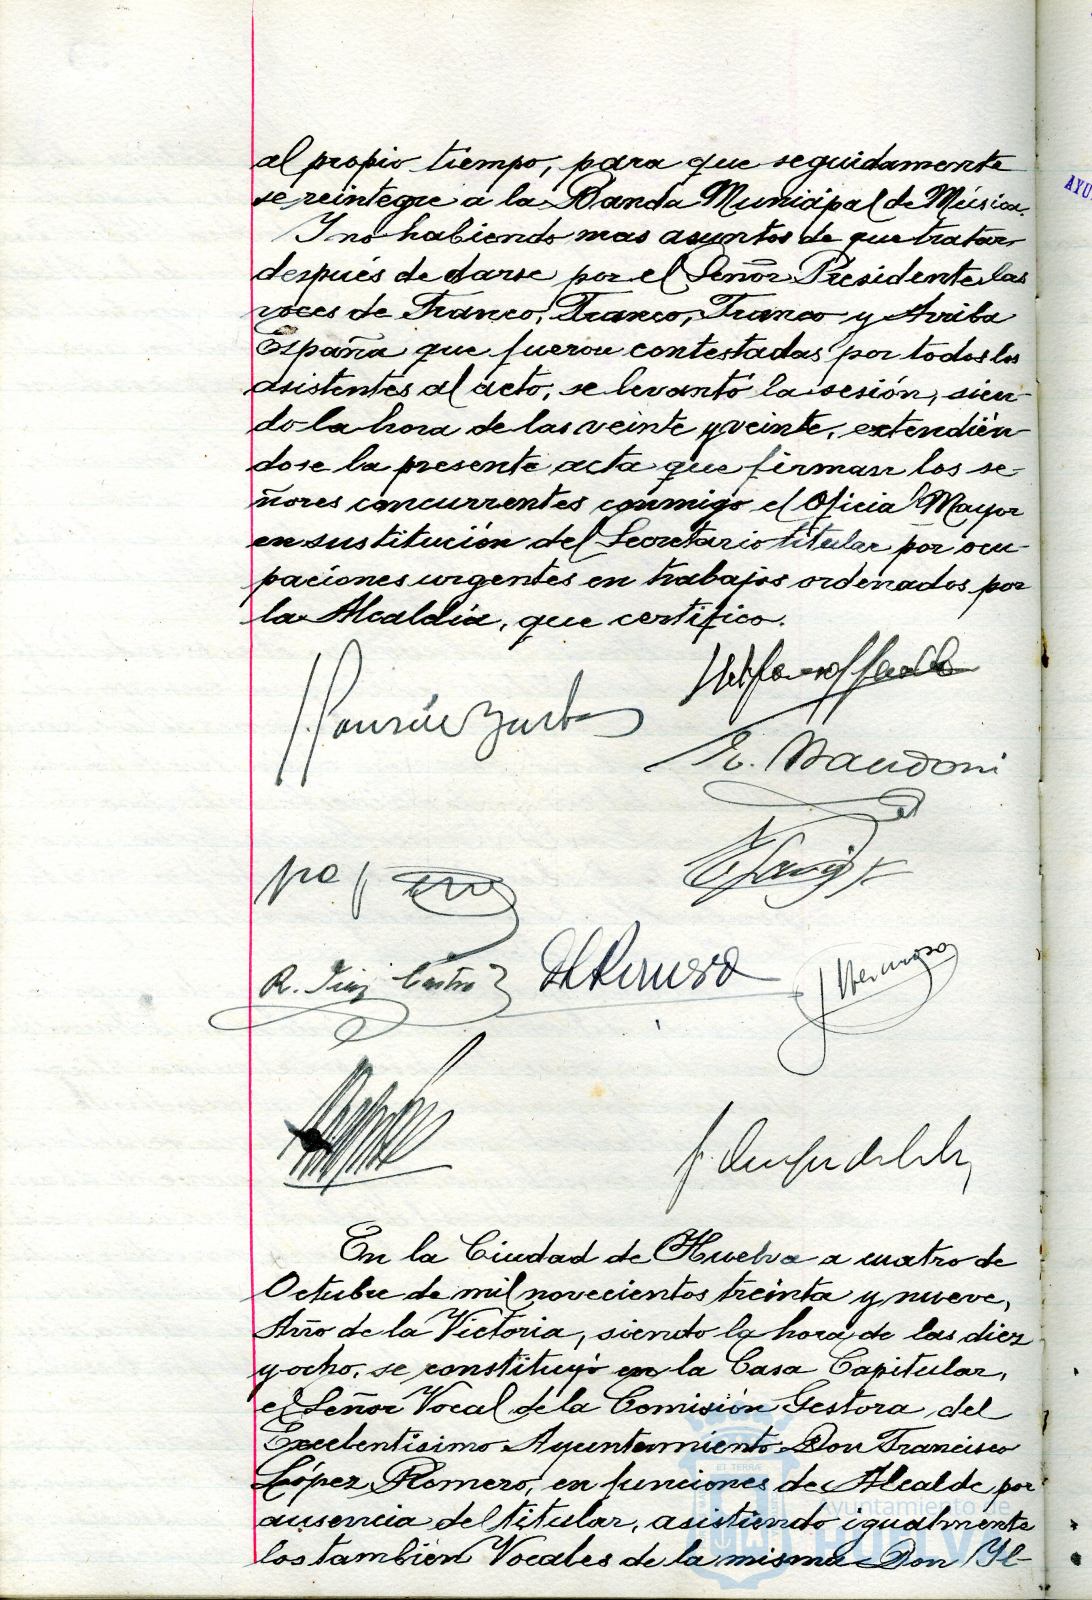 al propio tiempo, para que seguidamente
se reintegre a la Banda Municipal de Música.
Y no habiendo mas asuntos de que tratar,
después de darse por el Señor Presidente las
voces de Franco, Franco, Franco y Arriba
España que fueron contestadas por todos los
asistentes al acto, se levantó la sesión, sien-
do la hora de las veinte y veinte, extendién-
dose la presente acta que firman los se-
ñores concurrentes conmigo el Oficial Mayor
en sustitución del Secretario titular por ocu-
paciones urgentes en trabajos ordenados por
la Alcaldía, que certifico.
R. Díaz Castro
J. Hermoso
En la Ciudad de Huelva a cuatro de
Octubre de mil novecientos treinta y nueve,
Año de la Victoria, siendo la hora de las diez
y ocho, se constituyó en la Casa Capitular,
el Señor Vocal de la Comisión Gestora del
Excelentísimo Ayuntamiento Don Francisco
López Romero, en funciones de Alcalde por
ausencia del titular, asistiendo igualmente
los también Vocales de la misma Don Il-
Ayuntamiento de
HUELVA
AYU